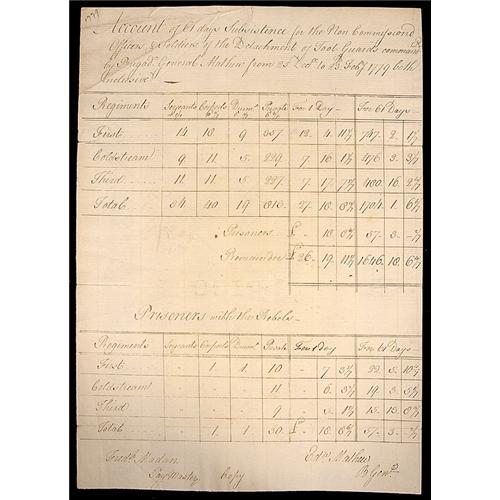 1779
Account of 61 days Subsistence for the Non Commission'd
Officers & Soldiers of the Detachment of Foot Guards command'd
by Brigad'r General Mathew from 25 Dec'r to 23 Feb'y 1779 both
Inclusive
Regiments Serjeants Corporals Drum'rs Private For 1 Day For 61 Days
First 14 18 9 357 12. 4. 11 747. 2. 1
Coldstream 9 11 5 229 7. 16 1 476 3
Third 11 11 5 227 7. 17. 7 480. 16. 2
Total 34 40 19 813 27. 18. 8 1704. 1. 6
Prisoners £ - 18 8 57. 3. -
Remainder £ 26. 19. 11 1646. 18. 6
Prisoners with the Rebels
Regiments Serjeants Corporals Drum'rs Private For 1 Day For 61 Days
First - 1. 1. 10 - 7 3 22. 5. 10
Coldstream - - - 11 - 6. 3 19. 3. 5
Third - - - 9 - 5. 1 15. 13. 8
Total - 1. 1. 30 £ - 18 8 57. 3. -
Fred'k Madan Edw'd Mathew
Pay Master Copy B Gen'l